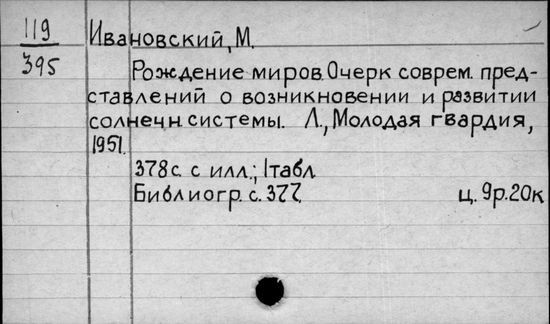 119 Ивановский, М.
395 Рождение миров. Очерк соврем. пред-
ставлений о возникновении и развитии
солнечн. системы. Л., Молодая гвардия,
1951.
378с. с илл.; 1табл.
Библиогр. с. 377. ц. 9р.20к